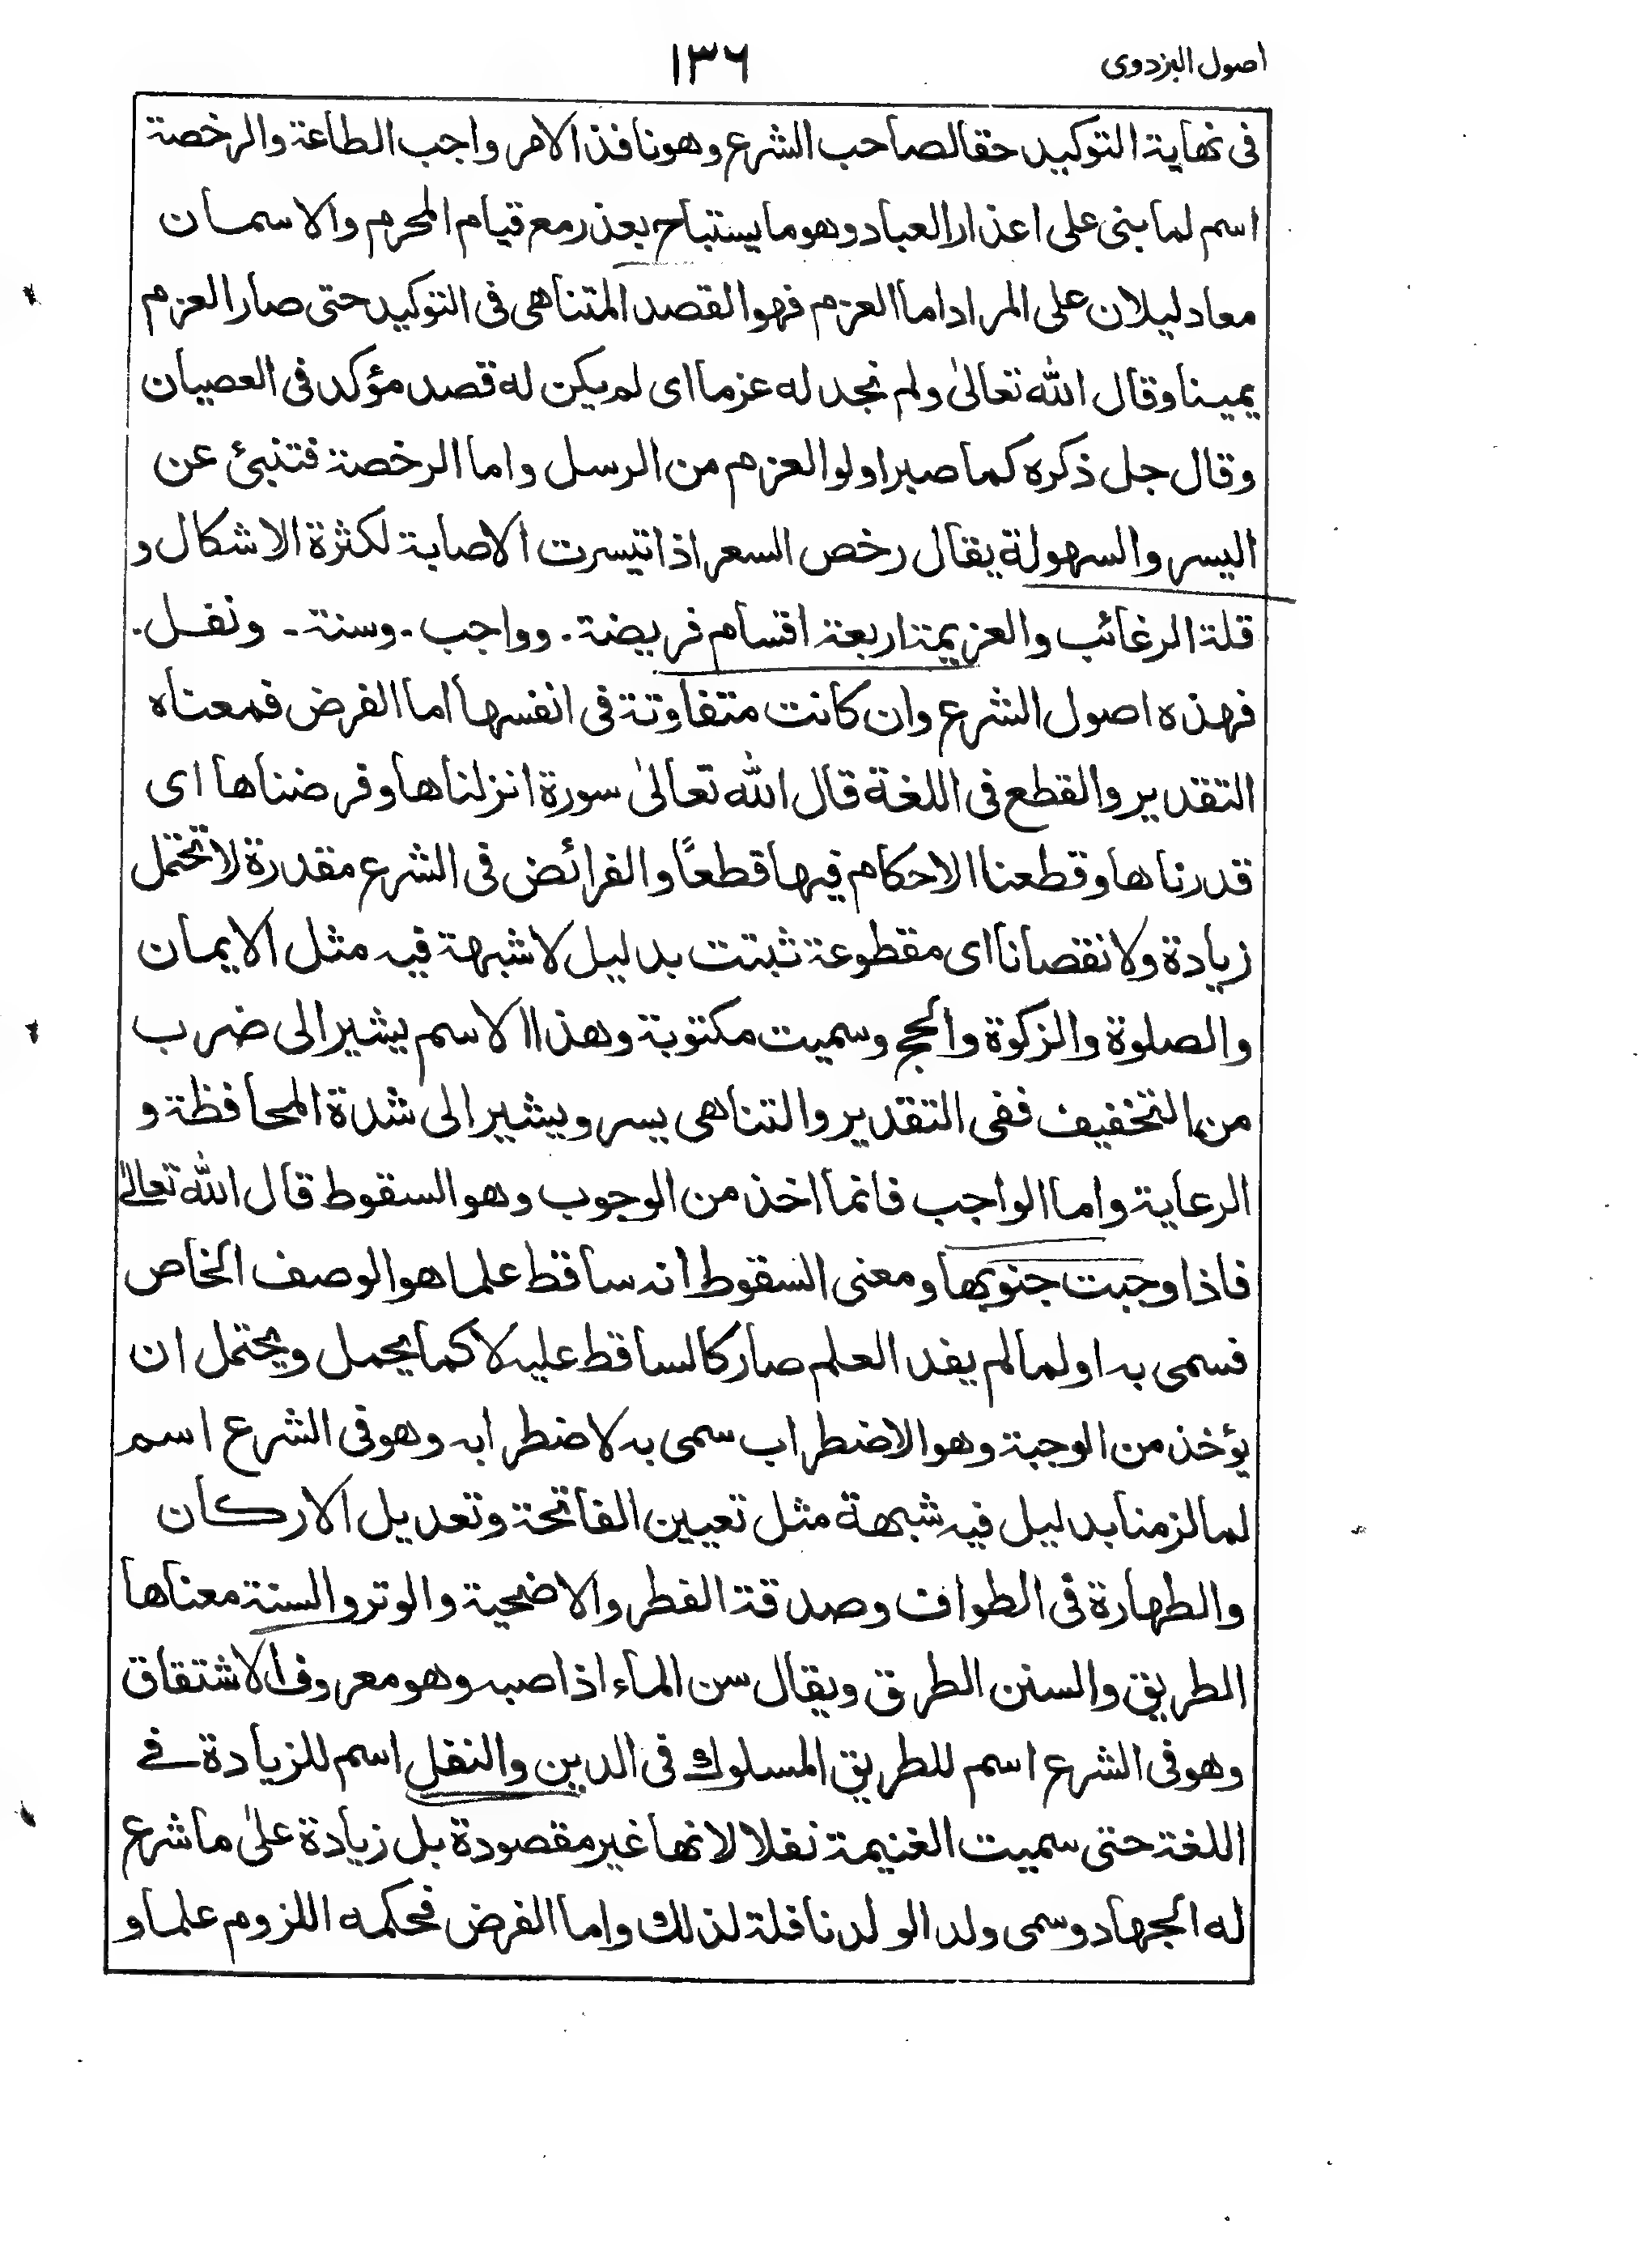 اصول البزدوى
١٣٦
فى نهاية التوكيد حقا لصاحب الشرع وهو نافذ الامر واجب الطاعة والرخصة
اسم لما بنى على اعذار العباد وهو ما يستباح بعذر مع قيام المحرم والاسمان
معا دليلان على المراد اما العزم فهو القصد المتناهى فى التوكيد حتى صار العزم
يمينا وقال الله تعالىٰ ولم نجد له عزما اى لم يكن له قصد مؤكد فى العصيان
وقال جل ذكره كما صبر اولوا العزم من الرسل واما الرخصة فتنبئ عن
اليسر والسهولة يقال رخص السعر اذا تيسرت الاصابة لكثرة الاشكال و
قلة الرغائب والعزيمة اربعة اقسام فريضة - وواجب - وسنة - ونفل.
فهذه اصول الشرع وان كانت متفاوتة فى انفسها اما الفرض فمعناه
التقدير والقطع فى اللغة قال الله تعالىٰ سورة انزلناها وفرضناها اى
قدرناها وقطعنا الاحكام فيها قطعًا والفرائض فى الشرع مقدرة لا تحتمل
زيادة ولا نقصانا اى مقطوعة ثبتت بدليل لا شبهة فيه مثل الايمان
والصلوة والزكوة والحج وسميت مكتوبة وهذا الاسم يشير الى ضرب
من التخفيف ففى التقدير والتناهى يسر ويشير الى شدة المحافظة و
الرعاية واما الواجب فانما اخذ من الوجوب وهو السقوط قال الله تعالىٰ
فاذا وجبت جنوبها ومعنى السقوط انه ساقط علما هو الوصف الخاص
فسمى به او لما لم يفد العلم صار كالساقط عليه لا كما يحمل ويحتمل ان
يؤخذ من الوجبة وهو الاضطراب سمى به لاضطرابه وهو فى الشرع اسم
لما لزمنا بدليل فيه شبهة مثل تعيين الفاتحة وتعديل الاركان
والطهارة فى الطواف وصدقة الفطر والاضحية والوتر والسنة معناها
الطريق والسنن الطرق ويقال سن الماء اذا صبه وهو معروف الاشتقاق
وهو فى الشرع اسم للطريق المسلوك فى الدين والنفل اسم للزيادة فے
اللغة حتى سميت الغنيمة نفلا لانها غير مقصودة بل زيادة علىٰ ما شرع
له الجهاد وسمى ولد الولد نافلة لذلك واما الفرض فحكمه اللزوم علما و